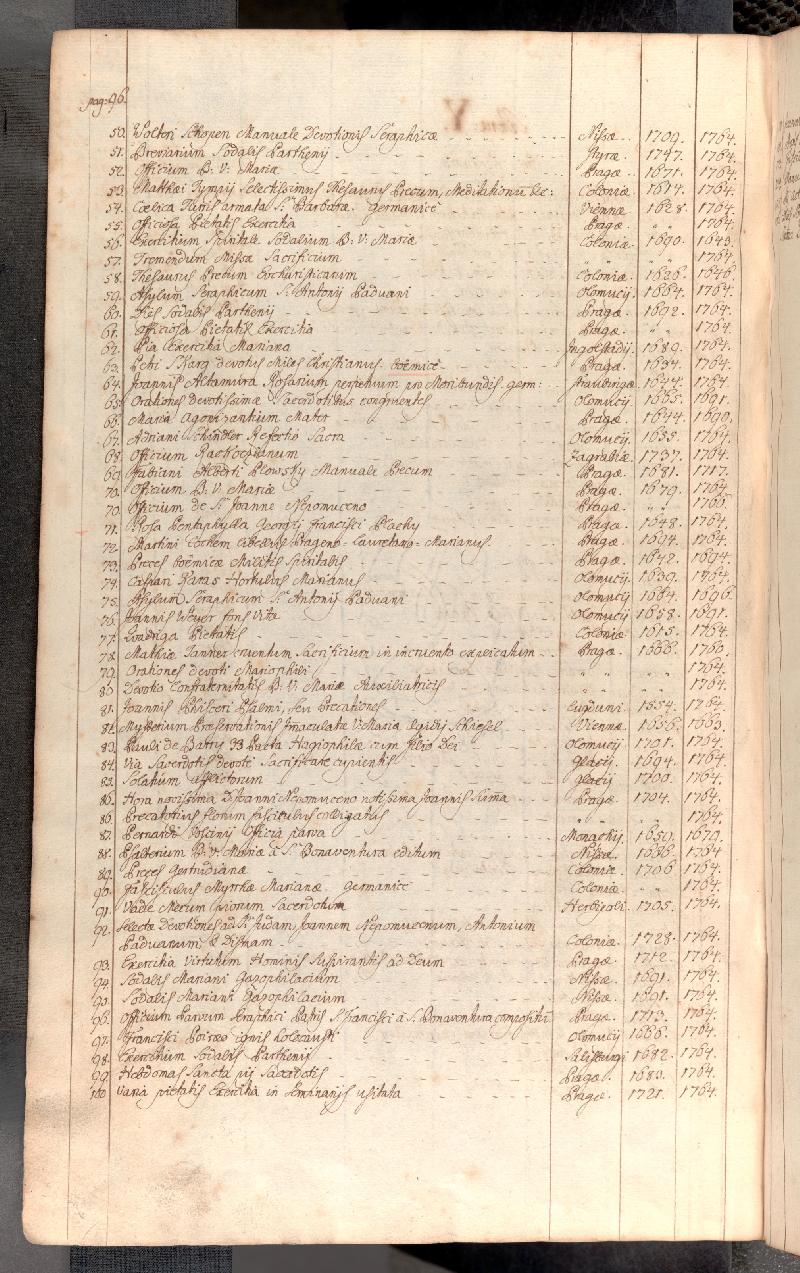 pag: 96.
50. Wolteri Schopen Manuale Devotionis Seraphicæ Nissæ. 1709. 1764.
51. Breviarium Sodalis Parthenij 1747. 1764.
52. Officium B: V: Mariæ Pragæ 1671. 1764.
53. Matthæi Tympij Selectissimus Thesaurus Precum, Meditationū &c: Coloniæ 1614. 1764.
54. Cœlica Turris armata S: Barbaræ. Germanicè Viennæ 1628. 1764.
55. Officiosa Pietatis Exercitia Pragæ. " " 1764.
56. Exercitium Spirituale Sodalium B: V: Mariæ Coloniæ 1690. 1643.
57. Tremendum Missæ Sacrificium " " " 1764.
58. Thesaurus Precum Eucharisticarum Coloniæ. 1626. 1646.
59. Asylum Seraphicum S: Antonij Paduani Olomucij 1664. 1764.
60. Sodalis Parthenij Pragæ. 1692. 1764.
61. Officiosa Pietatis Exercitia Pragæ. " " 1764.
62. Pia Exercitia Mariana Ingolstadij. 1689. 1764.
63. Petri Skarg devotus Miles Christianus boëmicè Pragæ. 1634. 1764.
64. Joannis Altamura Rosarium perpetuum pro Moribundis germ: Straubingæ 1644. 1764.
65. Orationes devotissimæ Sacerdotibus congruentes Olomucij 1665. 1691.
66. Maria Agonizantium Mater Pragæ. 1644. 1690.
67. Adriani Schindler Refectio Sacra Olomucij. 1655. 1764.
68. Officium Rakoczianum Zagrabiæ 1737. 1764.
69. Fabiani Alberti Plowsky Manuale Precum Pragæ. 1681. 1717.
70. Officium B: V: Mariæ Pragæ. 1679. 1764.
70. Officium de S: Joanne Nepomuceno Pragæ. " " 1766.
71. Rosa Pentaphylla Georgij Francisci Plachy Pragæ. 1648. 1764.
72. Martini Cochem Libellus Prageno-Lauretano-Marianus Pragæ. 1694. 1764.
73. Preces boëmicæ Militis Spiritalis Pragæ. 1642. 1694.
74. Cæsari Karas Hortulus Marianus Olomucij 1659. 1764.
75. Asylum Seraphicum S: Antonij Paduani Olomucij 1664. 1696.
76. Joannis Weyer fons Vitæ Olomucij 1658. 1691.
77. Quadriga Pietatis Coloniæ 1615. 1764.
78. Mathiæ Tanner cruentum Sacrificium in incruento explicatum Pragæ. 1666. 1760.
79. Orationes devoti Mariophili " " " 1764.
80. Devotio Confraternitatis B: V: Mariæ Auxiliatricis " " 1764.
81. Joannis Psalmi, seu Precationes Lugduni. 1554. 1764.
81. Mysterium Præservationis Jmaculatæ V: Mariæ Ægidij Schiesel Viennæ. 1656. 1663.
83. Pauli de Batry 33 Pacta Hagiophilæ cum filio Dei Olomucij 1701. 1764.
84. Via Sacerdotis devotè Sacrificare cupientis Glacij 1694. 1764.
85. Solatium afflictorum Glacij 1700. 1764.
86. Hora novissima D: Joanni Nepomuceno notissima Joannis Pragæ. 1704. 1764.
86. Precatorius florum fasciculus colligatus " " " 1764.
87. Bernardi Officia parva Monachij. 1650. 1679.
88. Psalterium B: V: Mariæ à S: Bonaventura editum Nissæ. 1686. 1764
89. Preces Gertrudianæ Coloniæ. 1706 1764.
90. Fasciculus Myrrhæ Marianæ. Germanicè Coloniæ. " " 1764.
91. Vade Mecum piorum Sacerdotum Herbipoli. 1705. 1764.
92. Selectæ Devotiones ad S: Judam, Joannem Nepomucenum, Antonium
Paduanum & Dismam Coloniæ. 1728. 1764.
93. Exercitia Virtutum Hominis Suspirantis ad Deum Pragæ. 1712. 1764.
94. Sodalis Mariani Gazophilacium Nissæ. 1691. 1764.
95. Sodalis Mariani Gazophilacium Nissæ. 1691. 1764.
96. Officium Parvum Seraphici Patris S: Francisci à S: Bonaventura compositū Pragæ. 1713. 1764.
97. Francisci Poiræo ignis holocausti Olomucij 1666. 1764.
98. Exercitium Sodalis Parthenij Salisburgi 1682. 1764.
99. Hebdomas Sancta pij Sacerdotis Pragæ. 1683. 1764.
100 Varia pietatis Exercitia in Seminarijs usitata Pragæ. 1721. 1764.